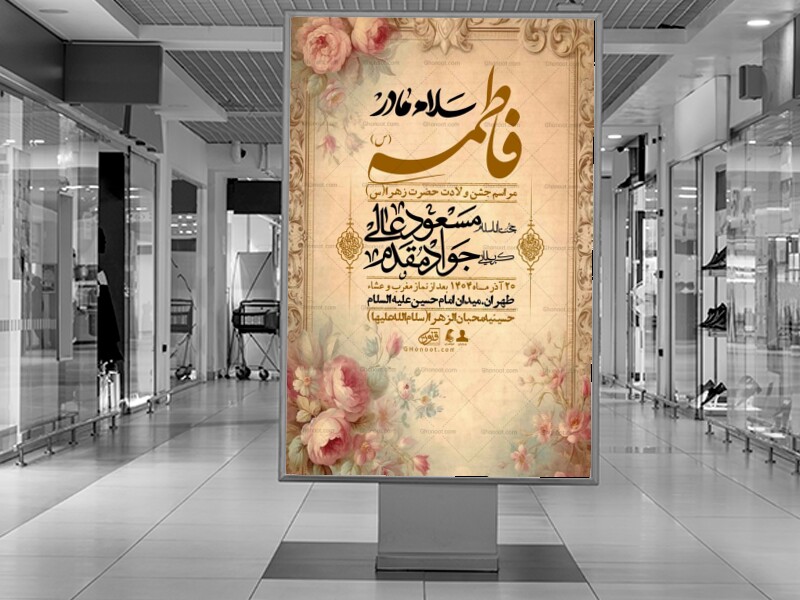 سلام مادر
فاطمه
(س)
مراسم جشن ولادت حضرت زهرا(س)
حجت‌الاسلام مسعود عالی
کربلایی جواد مقدم
۲۰ آذر ماه ۱۴۰۴ بعد از نماز مغرب و عشاء
طهران.میدان امام حسین علیه السلام
حسینیه محبان الزهرا(سلام الله علیها)
قانون
GHonoot.com